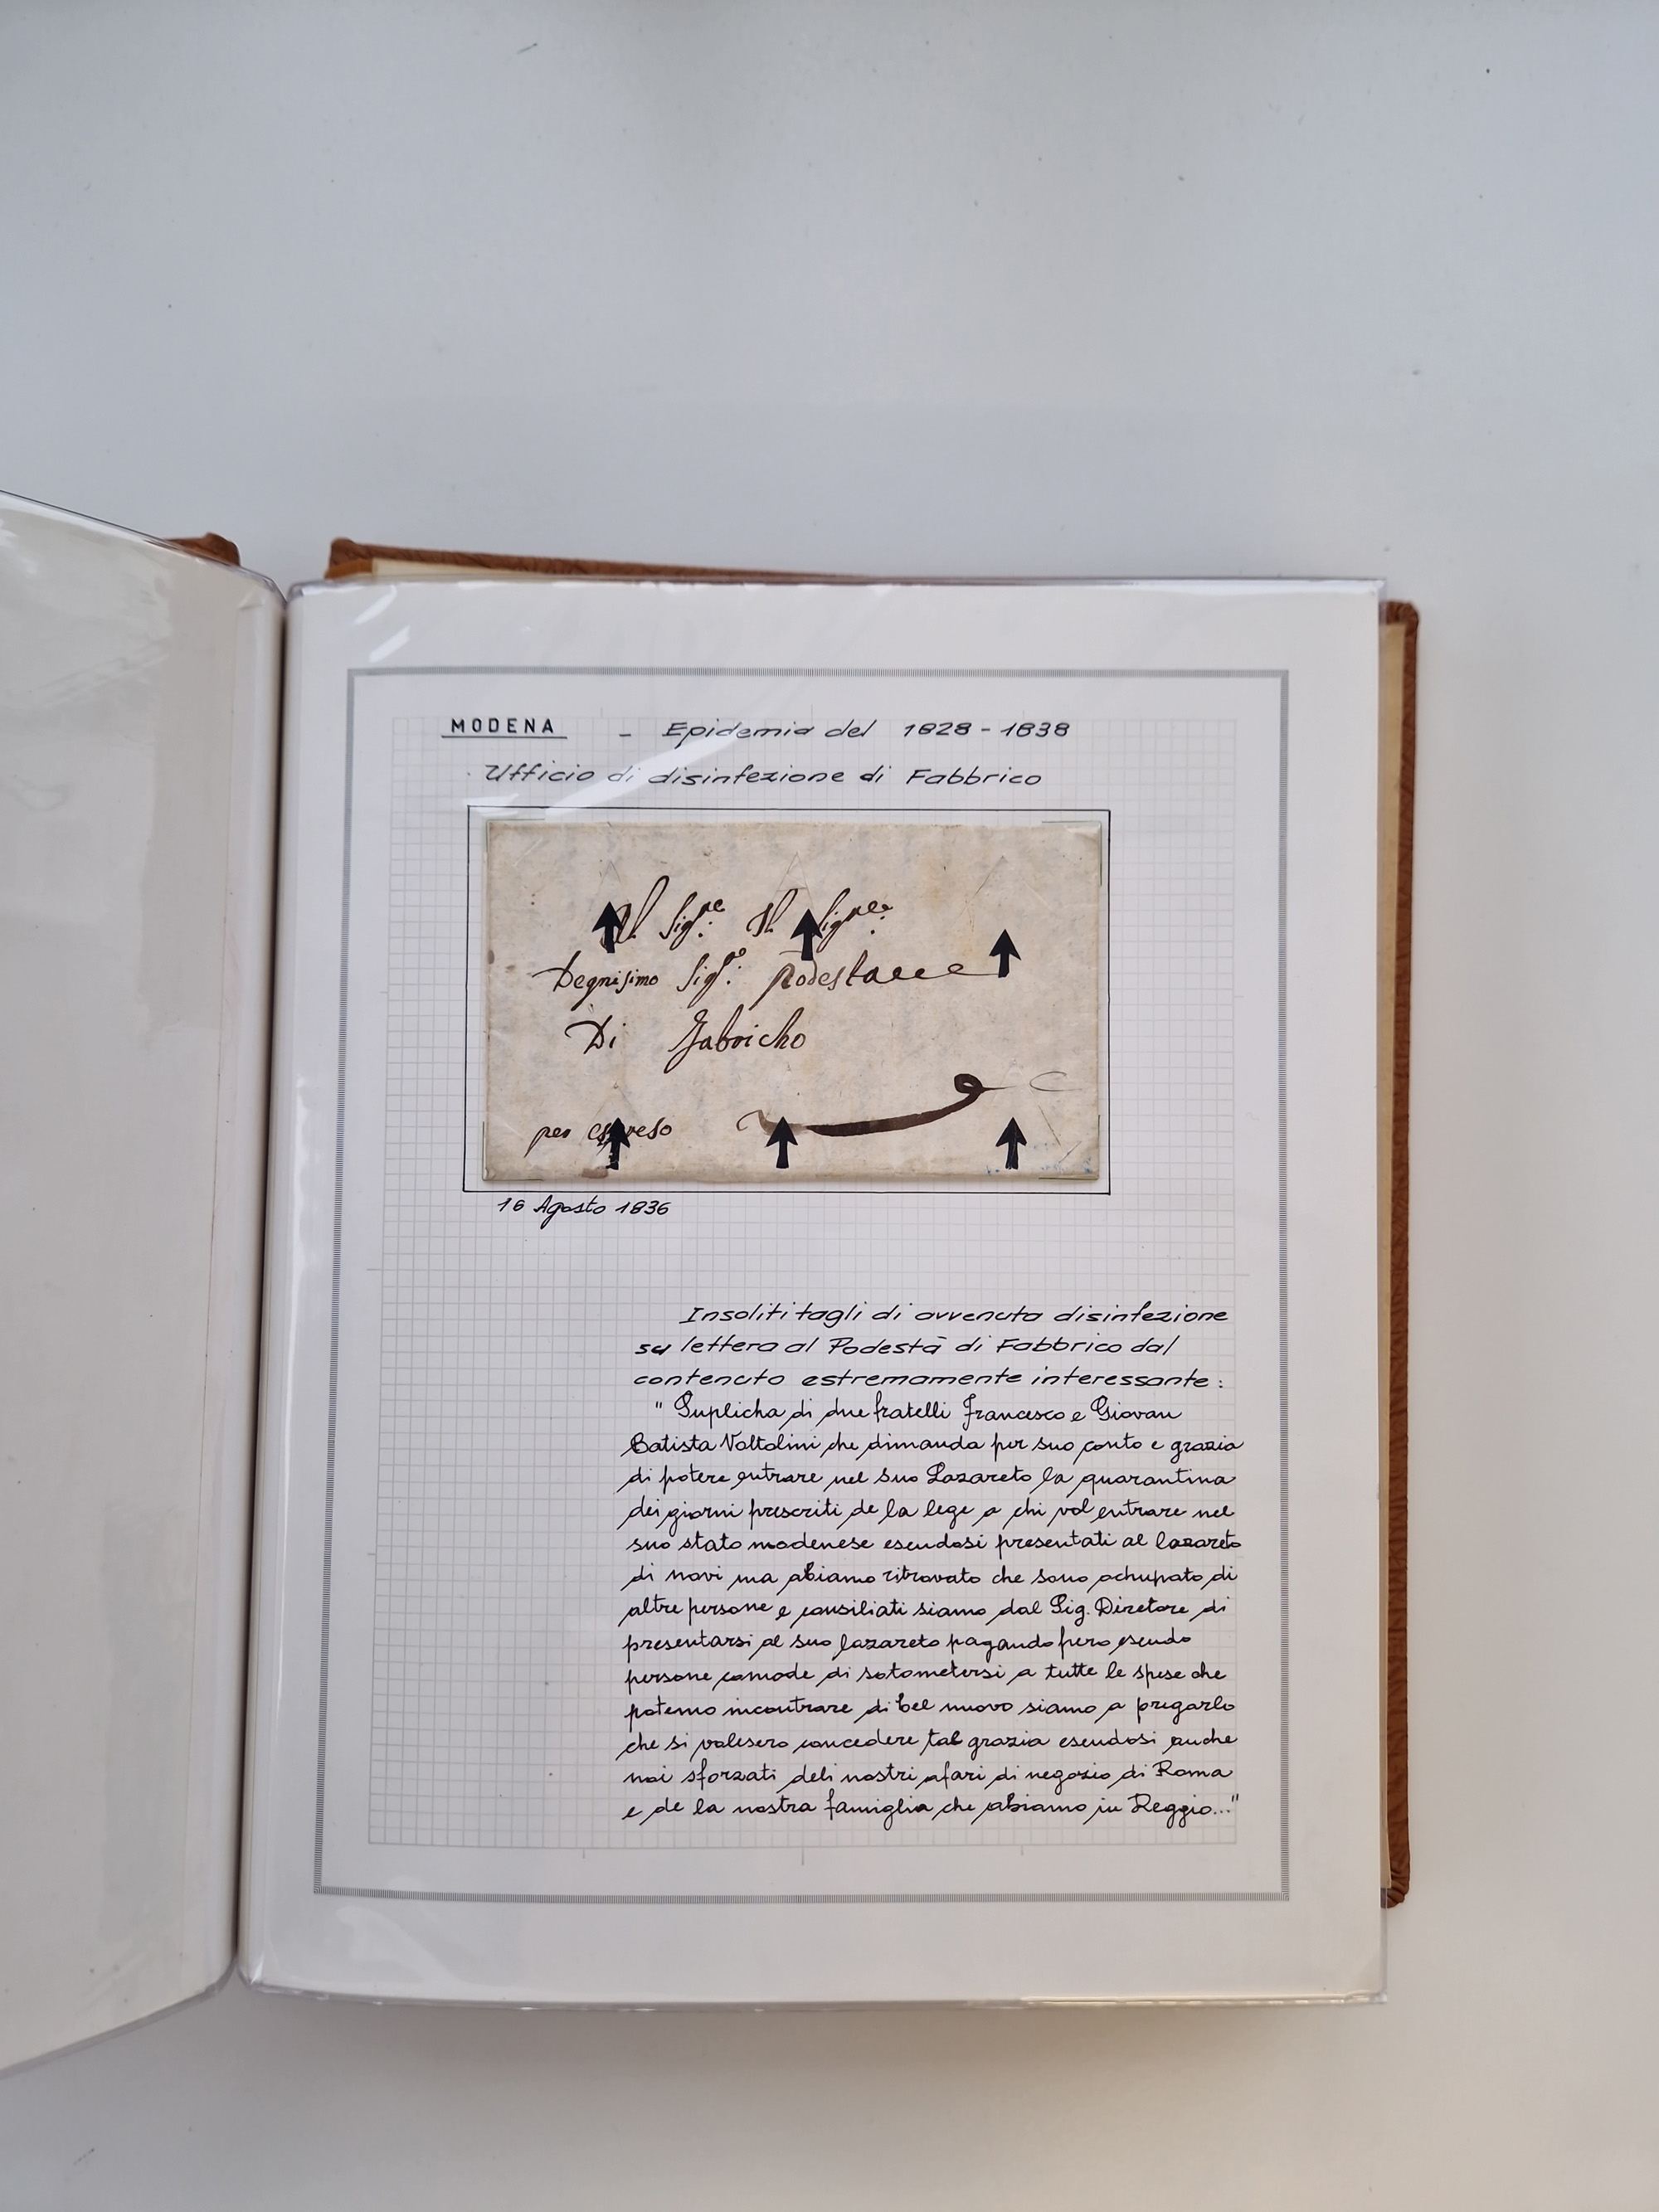 MODENA - Epidemia del 1828 - 1838
Ufficio di disinfezione di Fabbrico
Al Sig.re Il Sig.re
Degnisimo Sig.o: Podesta
Di Fabricho
per espreso
16 Agosto 1836
Insoliti tagli di avvenuta disinfezione
su lettera al Podestà di Fabbrico dal
contenuto estremamente interessante:
"Suplicha di due fratelli Francesco e Giovan
Batista Voltolini che dimanda per suo conto e grazia
di potere entrare nel suo Lazareto la quarantina
dei giorni prescriti de la lege a chi vol entrare nel
suo stato modenese esendosi presentati al lazareto
di novi ma abiamo ritrovato che sono achupato di
altre persone e consiliati siamo dal Sig. Diretore di
presentarsi al suo lazareto pagando pero esendo
persone comode di sotometersi a tutte le spese che
potemo incontrare di bel nuovo siamo a pregarlo
che si volesero concedere tal grazia esendosi anche
noi sforzati deli nostri afari di negozio di Roma
e de la nostra famiglia che abiamo in Reggio..."